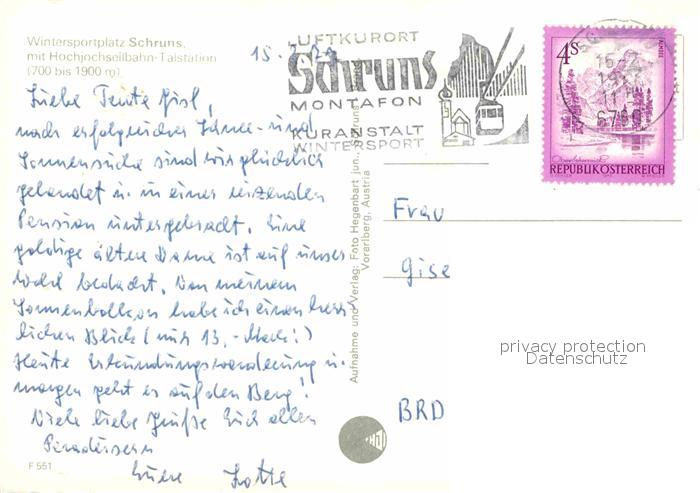 Wintersportplatz Schruns,
mit Hochjochseilbahn-Talstation
(700 bis 1900 m).
15.2.79
Liebe Tante Gisl,
nach erfolgreicher Schnee- und
Sonnensuche sind wir glücklich
gelandet u. in einer reizenden
Pension untergebracht. Eine
goldige ältere Dame ist auf unser
Wohl bedacht. Von meinem
Sonnenbalkon habe ich einen herr-
lichen Blick (nur 13,- Mark!)
Heute Erkundungswanderung u.
morgen geht es auf den Berg!
Viele liebe Grüße Euch allen
Eure Lotte
F 551
LUFTKURORT
Schruns
MONTAFON
KURANSTALT
WINTERSPORT
4S
ALMSEE
REPUBLIK ÖSTERREICH
6780
Aufnahme und Verlag: Foto Hegenbart jun., Schruns
Vorarlberg, Austria
Frau
Gise
privacy protection
Datenschutz
BRD